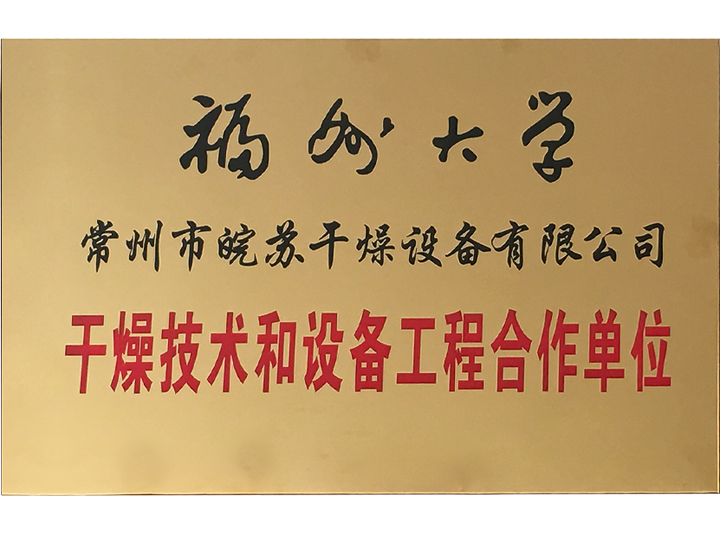 福州大学
常州市皖苏干燥设备有限公司
干燥技术和设备工程合作单位